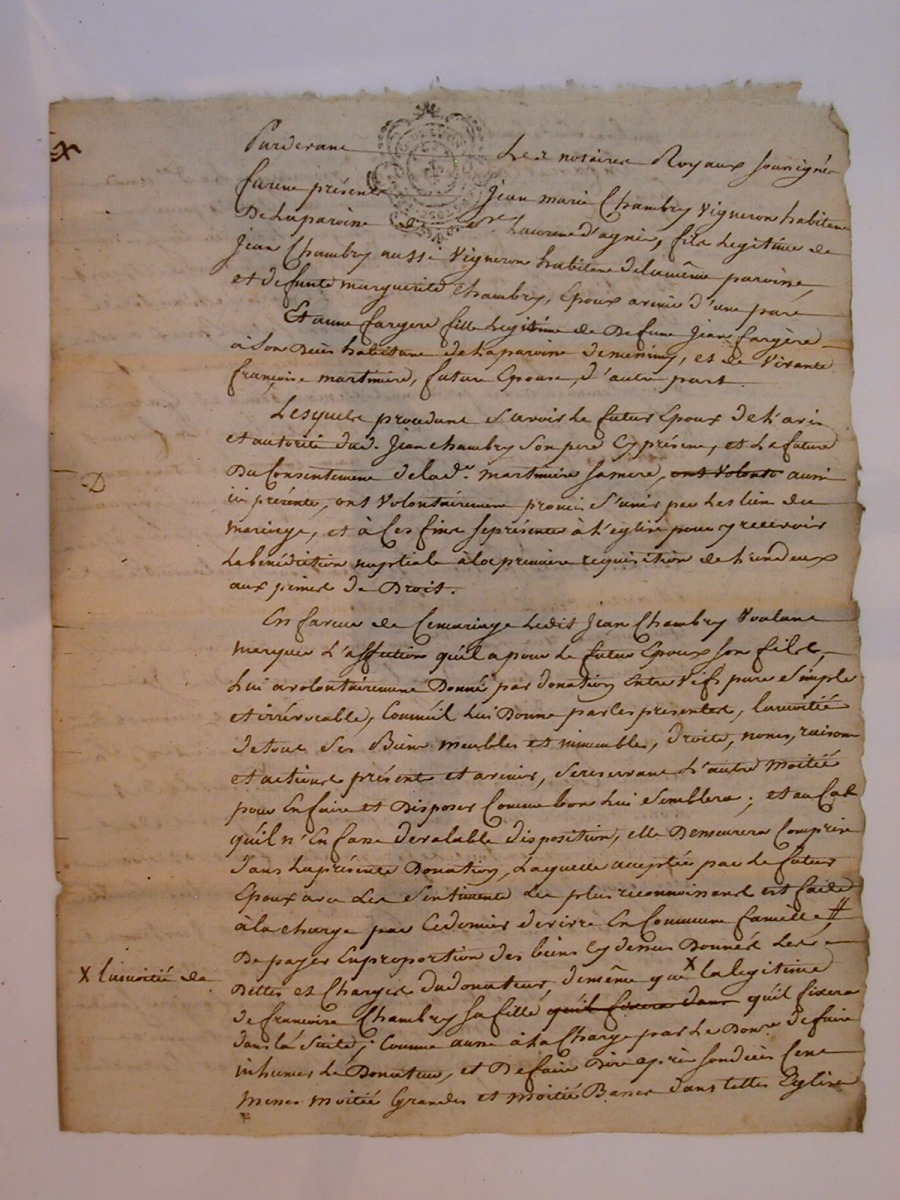 Pardevant Les notaires Royaux soussignés
furent présents Jean marie Chambry Vigneron habitant
De la paroisse de St. Laurent d'agnis, fils Legitime de
Jean Chambry aussi Vigneron habitant de la même paroisse,
et defunte marguerite Chambry, Epoux avenir d'une part
Et anne fargere fille Legitime de Defunt Jean fargère
à son Décès habitant de la paroisse de messimy, et de Vivante
françoise martiniere, future Epouse, d'autre part.
Lesquels procedant savoir Le futur Epoux de L'avis
et autorité dud. Jean Chambry son pere Cy présent, et La future
Du Consentement de lade. martiniere sa mere, ont Volont aussi
ici présente, ont Volontairement promis s'unir par Les lien du
mariage, et à Ces fins se présenter à L'eglise pour y recevoir
La bénédiction nuptiale à la premiere requisition de L'un deux
aux peines de Droit.
En faveur de Ce mariage Ledit Jean Chambry Voulant
marquer L'affection qu'il a pour Le futur Epoux son fils,
Lui a volontairement Donné par donation Entre Vifs pure Simple
et irrévocable, Comme il Lui Donne par Ces presentes, La moitié
de tous Ses Biens meubles et immeubles, droits, noms, raisons
et actions présents et avenir, se reservant L'autre Moitié
pour En faire et Disposer Comme bon Lui Semblera; et au Cas
qu'il n'En fasse de valable disposition, elle Demeurera Comprise
dans La présente Donation, Laquelle acceptée par Le futur
Epoux avec Les Sentiments Les plus reconnoissans est faite
à la charge par Ce dernier de vivre En Commune famille #
De payer En proportion des biens Cy dessus Donnés Les
X La moitié de
Dettes et Charges du donateur, de même que X la legitime
de francoise Chambry sa fille qu'il fixera dans qu'il fixera
dans la Suite; Comme aussi à La Charge par Le Donre. De faire
inhumer Le Donateur, et De faire Dire après son décès Cent
Messes moitié Grandes et moitié Basses dans telles Eglise